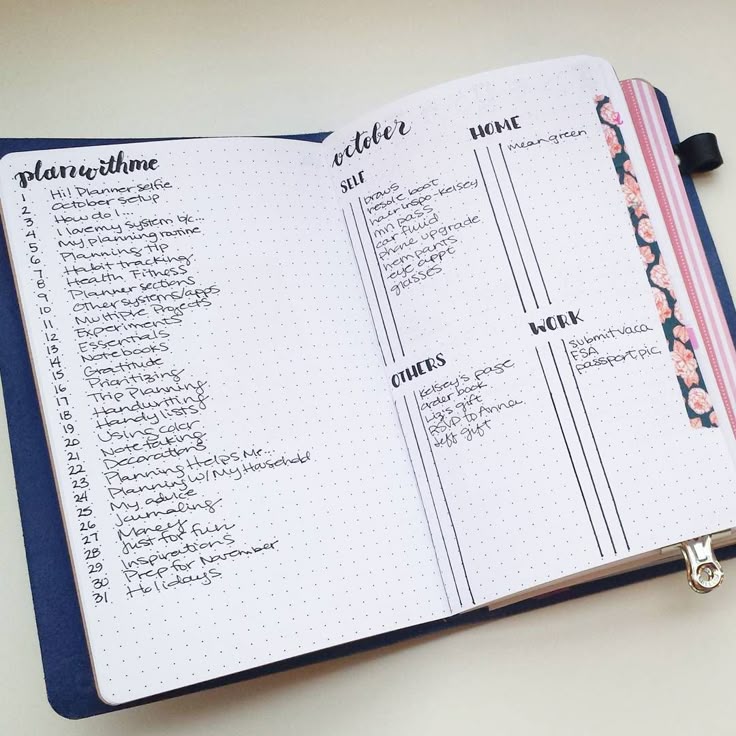 planwithme
1 Hi! Planner selfie
2 October setup
3 How do I...
4 I love my system b/c...
5 My planning routine
6 Planning tip
7 Habit tracking
8 Health Fitness
9 Planner sections
10 Other systems/apps
11 Multiple Projects
12 Experiments
13 Essentials
14 Notebooks
15 Gratitude
16 Prioritizing
17 Trip Planning
18 Handwriting
19 Handy lists
20 Using color
21 Note taking
22 Decorations
23 Planning Helps Me...
24 Planning w/ My Household
25 My advice
26 Journaling
27 Money
28 Just for fun
29 Inspirations
30 Prep for November
31 Holidays
october
SELF
brows
resole boot
hair inspo - Kelsey
mn pass
car fluid
phone upgrade
hem pants
eye appt
glasses
HOME
mean green
OTHERS
Kelsey's page
order book
Liz's gift
RSVP to Anna
Jeff gift
WORK
submit vaca
FSA
passport pic